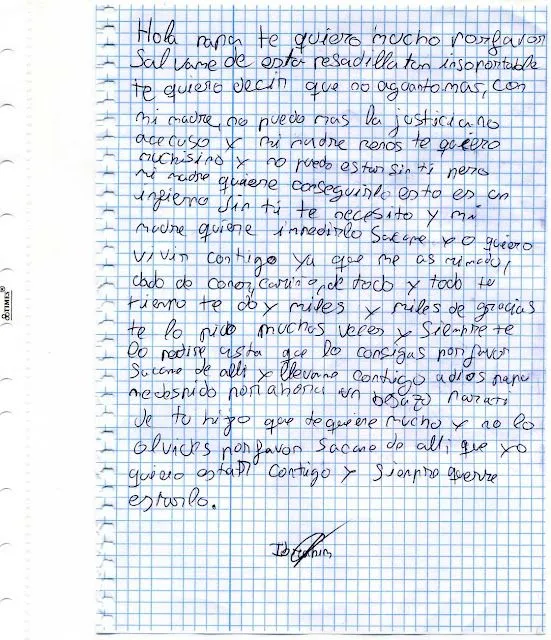 Hola papa te quiero mucho porfavor
Salvame de esta pesadilla tan insoportable
te quiero decir que no aguanto mas, con
mi madre, no puedo mas la justicia no
acecuso y mi madre menos te quiero
muchisimo y no puedo estar sin ti pero
mi madre quiere conseguirlo esto es un
infierno sin ti te necesito y mi
madre quiere impedirlo Sacame yo quiero
vivir contigo ya que me as mimado,
dado do cariño, de todo y todo te
tiempo te doy miles y miles de gracias
te lo pido muchas veces y siempre te
lo pedire asta que lo consigas porfavor
Sacame de alli y llevame contigo adios papa
me despido por ahora un besazo para ti
de tu higo que te quiere mucho y no lo
olvides porfavor sacame de alli que yo
quiero estar contigo y siempre querre
estarlo.
Ibrahim